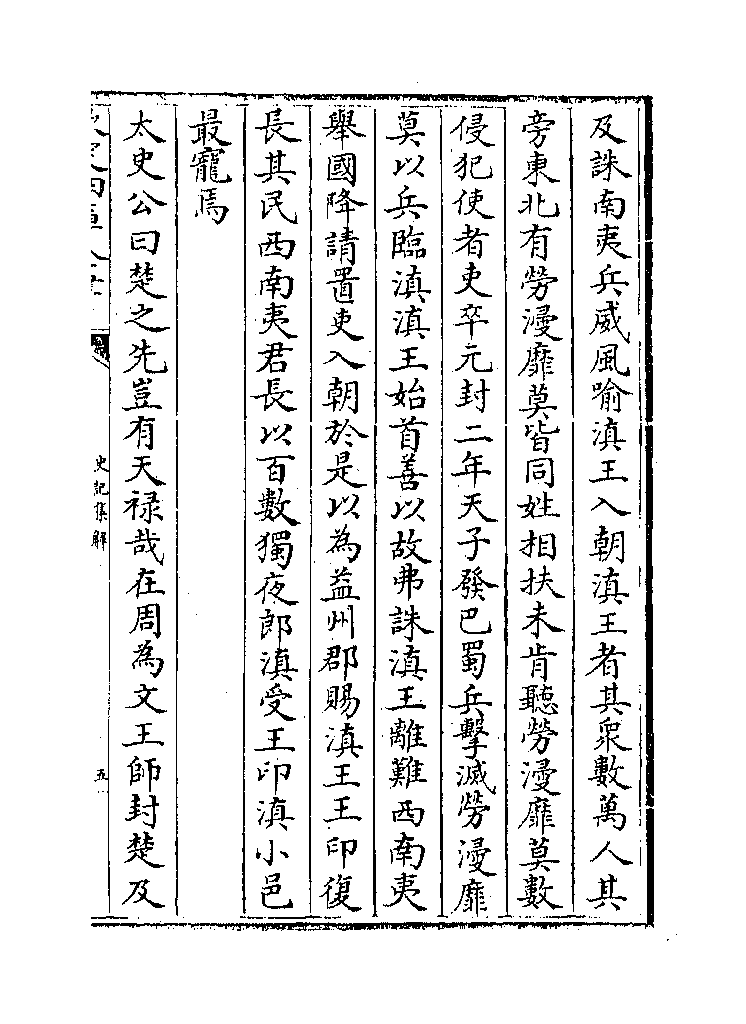 及誅南夷兵威風喻滇王入朝滇王者其衆數萬人其
旁東北有勞漫靡莫皆同姓相扶未肯聽勞漫靡莫數
侵犯使者吏卒元封二年天子發巴蜀兵擊滅勞漫靡
莫以兵臨滇滇王始首善以故弗誅滇王離難西南夷
舉國降請置吏入朝於是以為益州郡賜滇王王印復
長其民西南夷君長以百數獨夜郎滇受王印滇小邑
最寵焉
太史公曰楚之先豈有天祿哉在周為文王師封楚及
史記集解
五